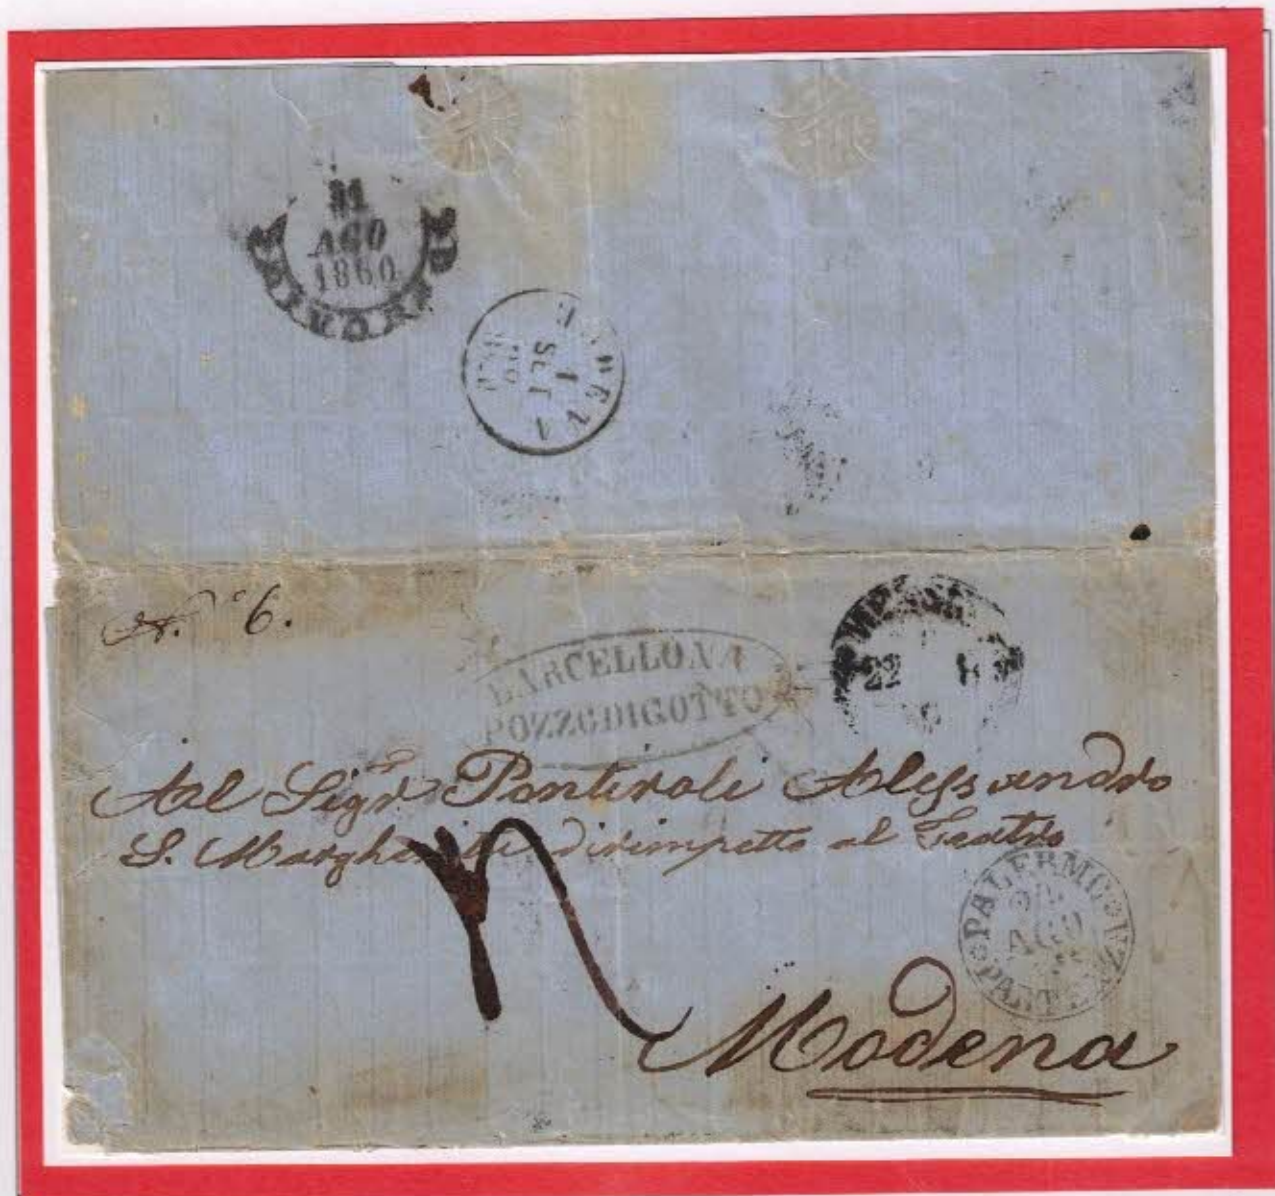 AGO
1860
LIVORNO
MODENA
1
SET
60
N.° 6.
BARCELLONA
POZZODIGOTTO
MESSINA
22
Al Sigr Pontiroli Alessandro
S. Margherita dirimpetto al Teatro
PALERMO
AGO
PARTENZA
Modena